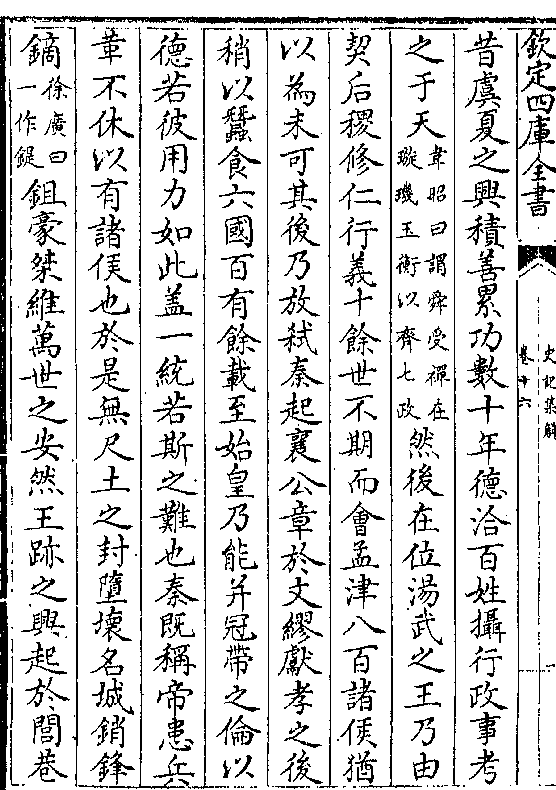 欽定四庫全書
史記集解
卷十六
昔虞夏之興積善累功數十年德洽百姓攝行政事考
之于天韋昭曰謂舜受禪在璇璣玉衡以齊七政然後在位湯武之王乃由
契后稷修仁行義十餘世不期而會孟津八百諸侯猶
以為未可其後乃放弒秦起襄公章於文繆獻孝之後
稍以蠶食六國百有餘載至始皇乃能并冠帶之倫以
德若彼用力如此蓋一統若斯之難也秦既稱帝患兵
革不休以有諸侯也於是無尺土之封墮壞名城銷鋒
鏑徐廣曰一作鍉鉏豪桀維萬世之安然王跡之興起於閭巷